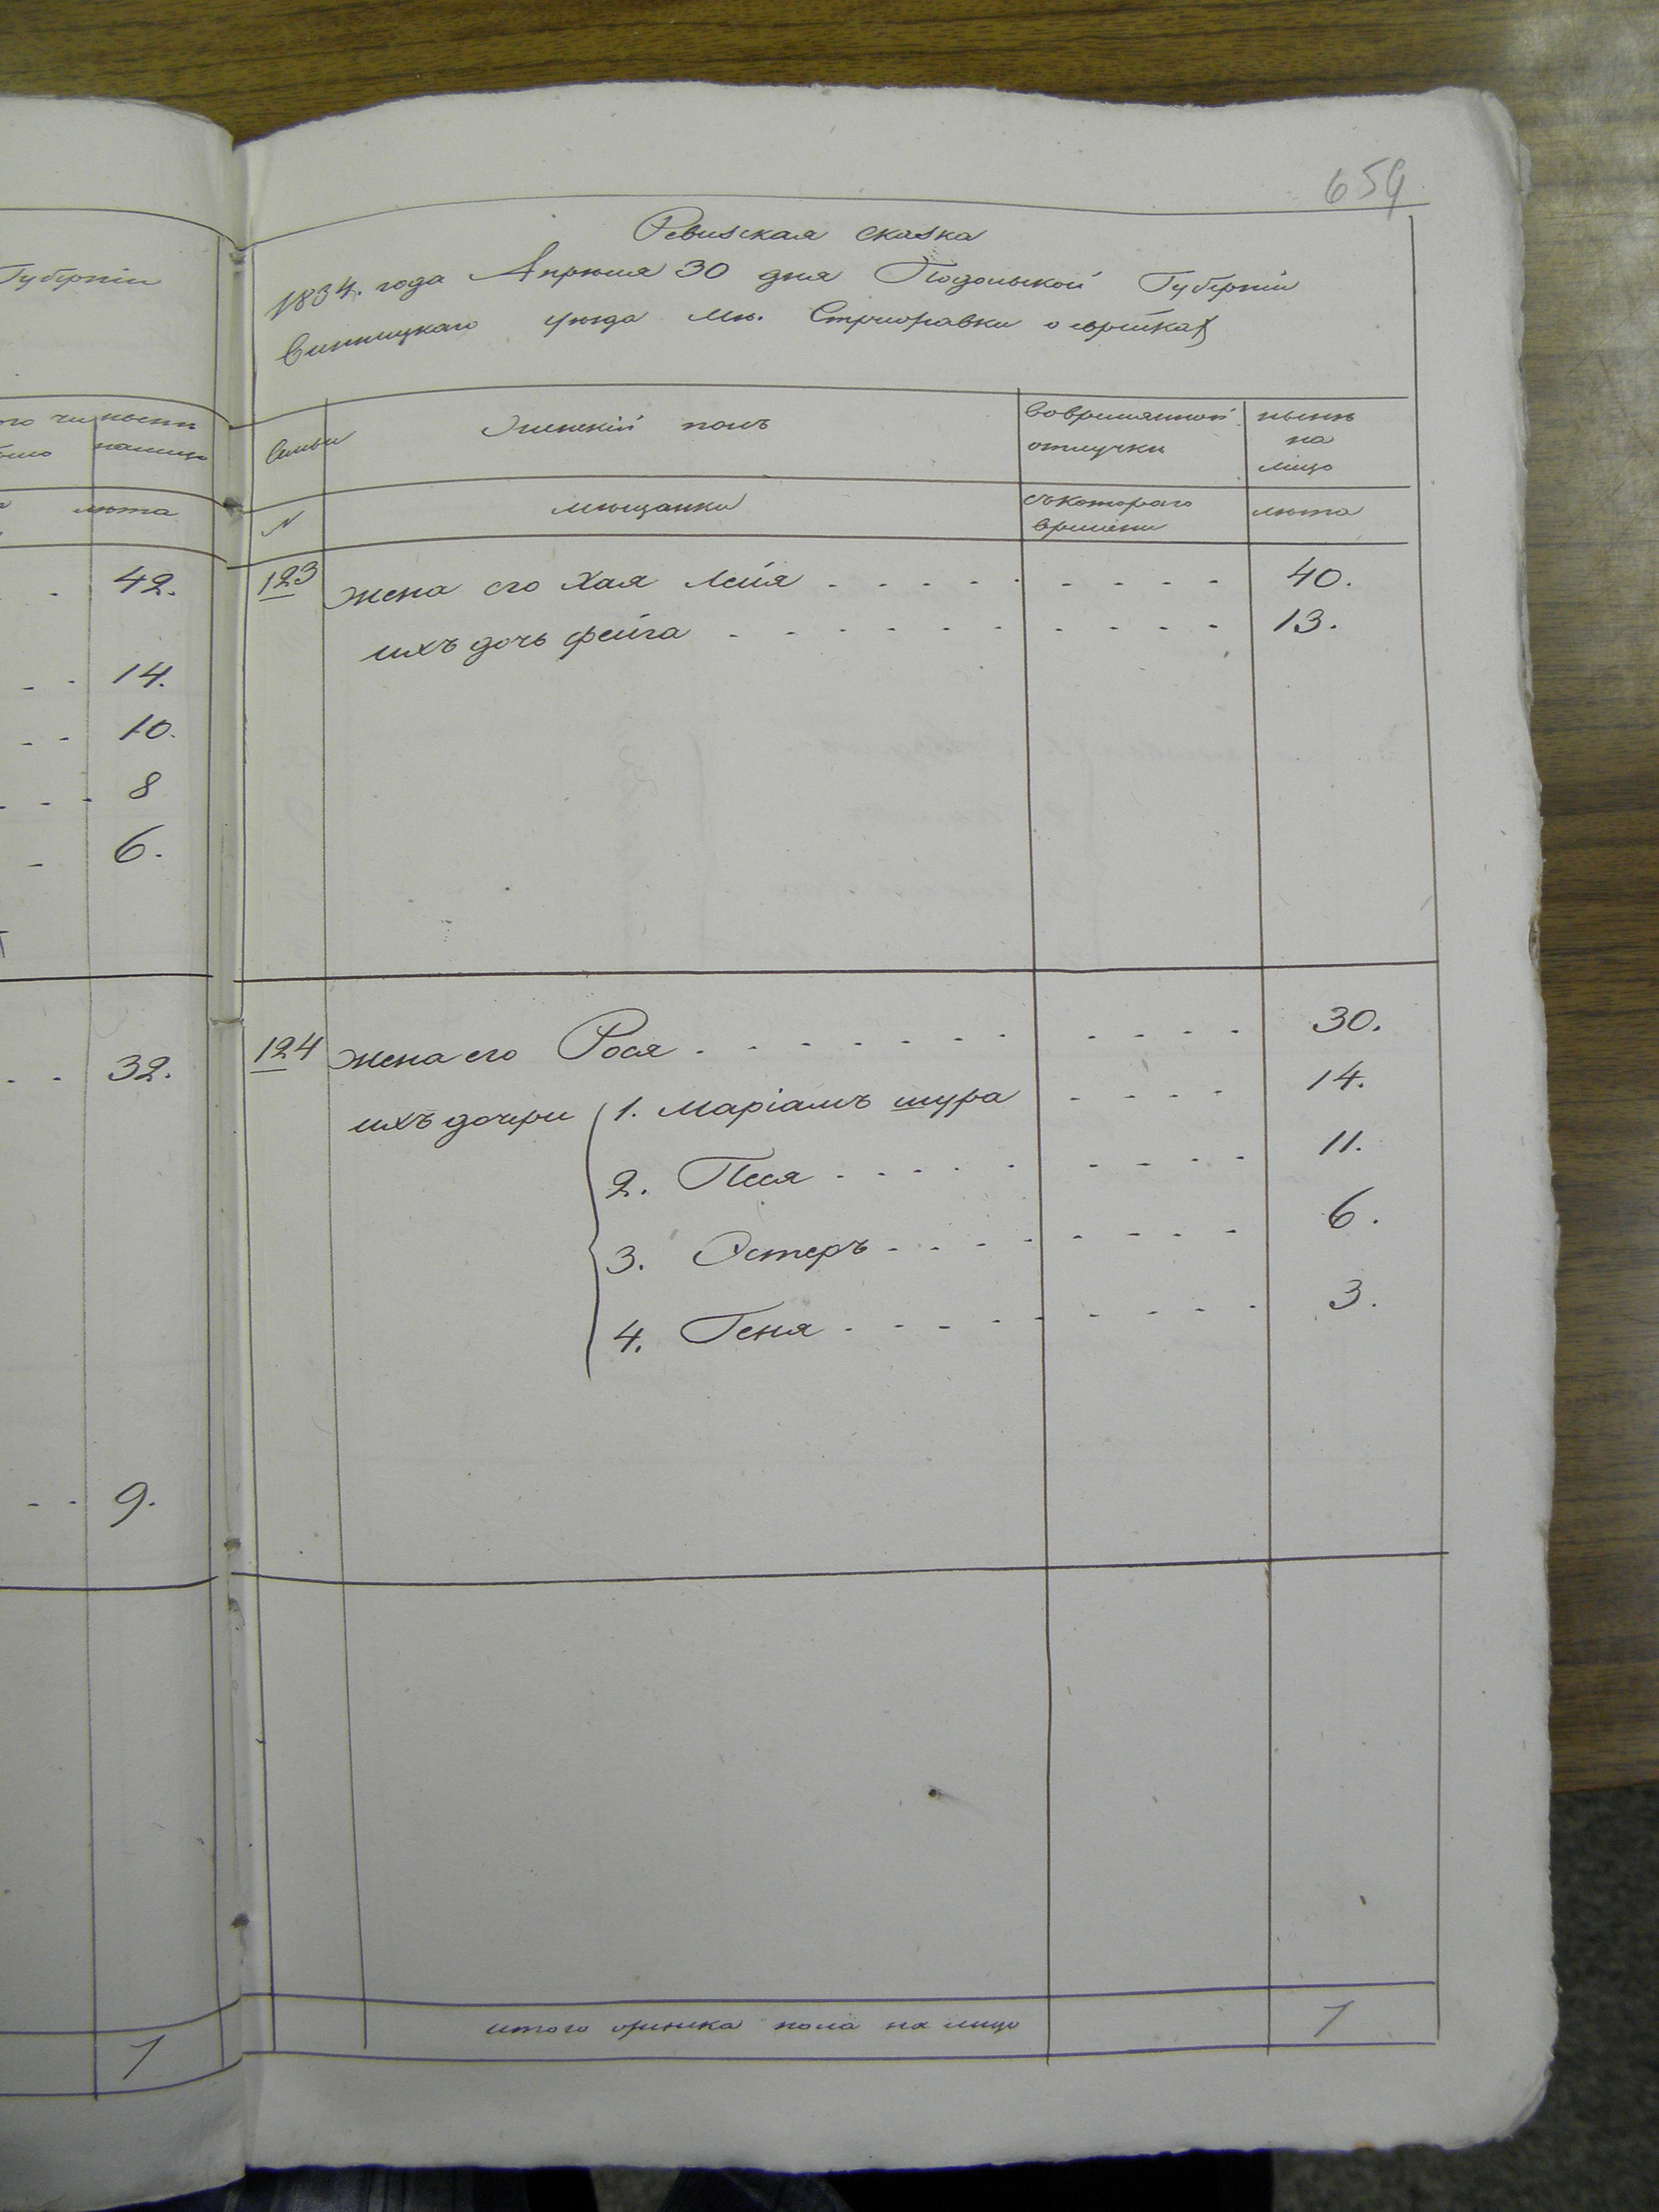 659
Губерніи
нынѣ
налицо
лѣта
42.
14.
10.
8
6.
32.
9.
7
Ревизская сказка
1834. года Апрѣля 30 дня Подольской Губерніи
Винницкаго уѣзда Мѣ. Стрижавки о евреѣкахъ
Семьи
Женскій полъ
Вовременной отлучки
нынѣ на лицо
N
мѣщанки
съкотораго времени
лѣта
123 жена его Хая Лейя - - - - - - - - - 40.
ихъ дочь фейга - - - - - - - - - - 13.
124 жена его Рося - - - - - - - - - - 30.
ихъ дочери 1. Маріамъ шура - - - - 14.
2. Песя - - - - - - - - - 11.
3. Эстеръ - - - - - - - - 6.
4. Геня - - - - - - - - - 3.
итого женска пола на лицо 7